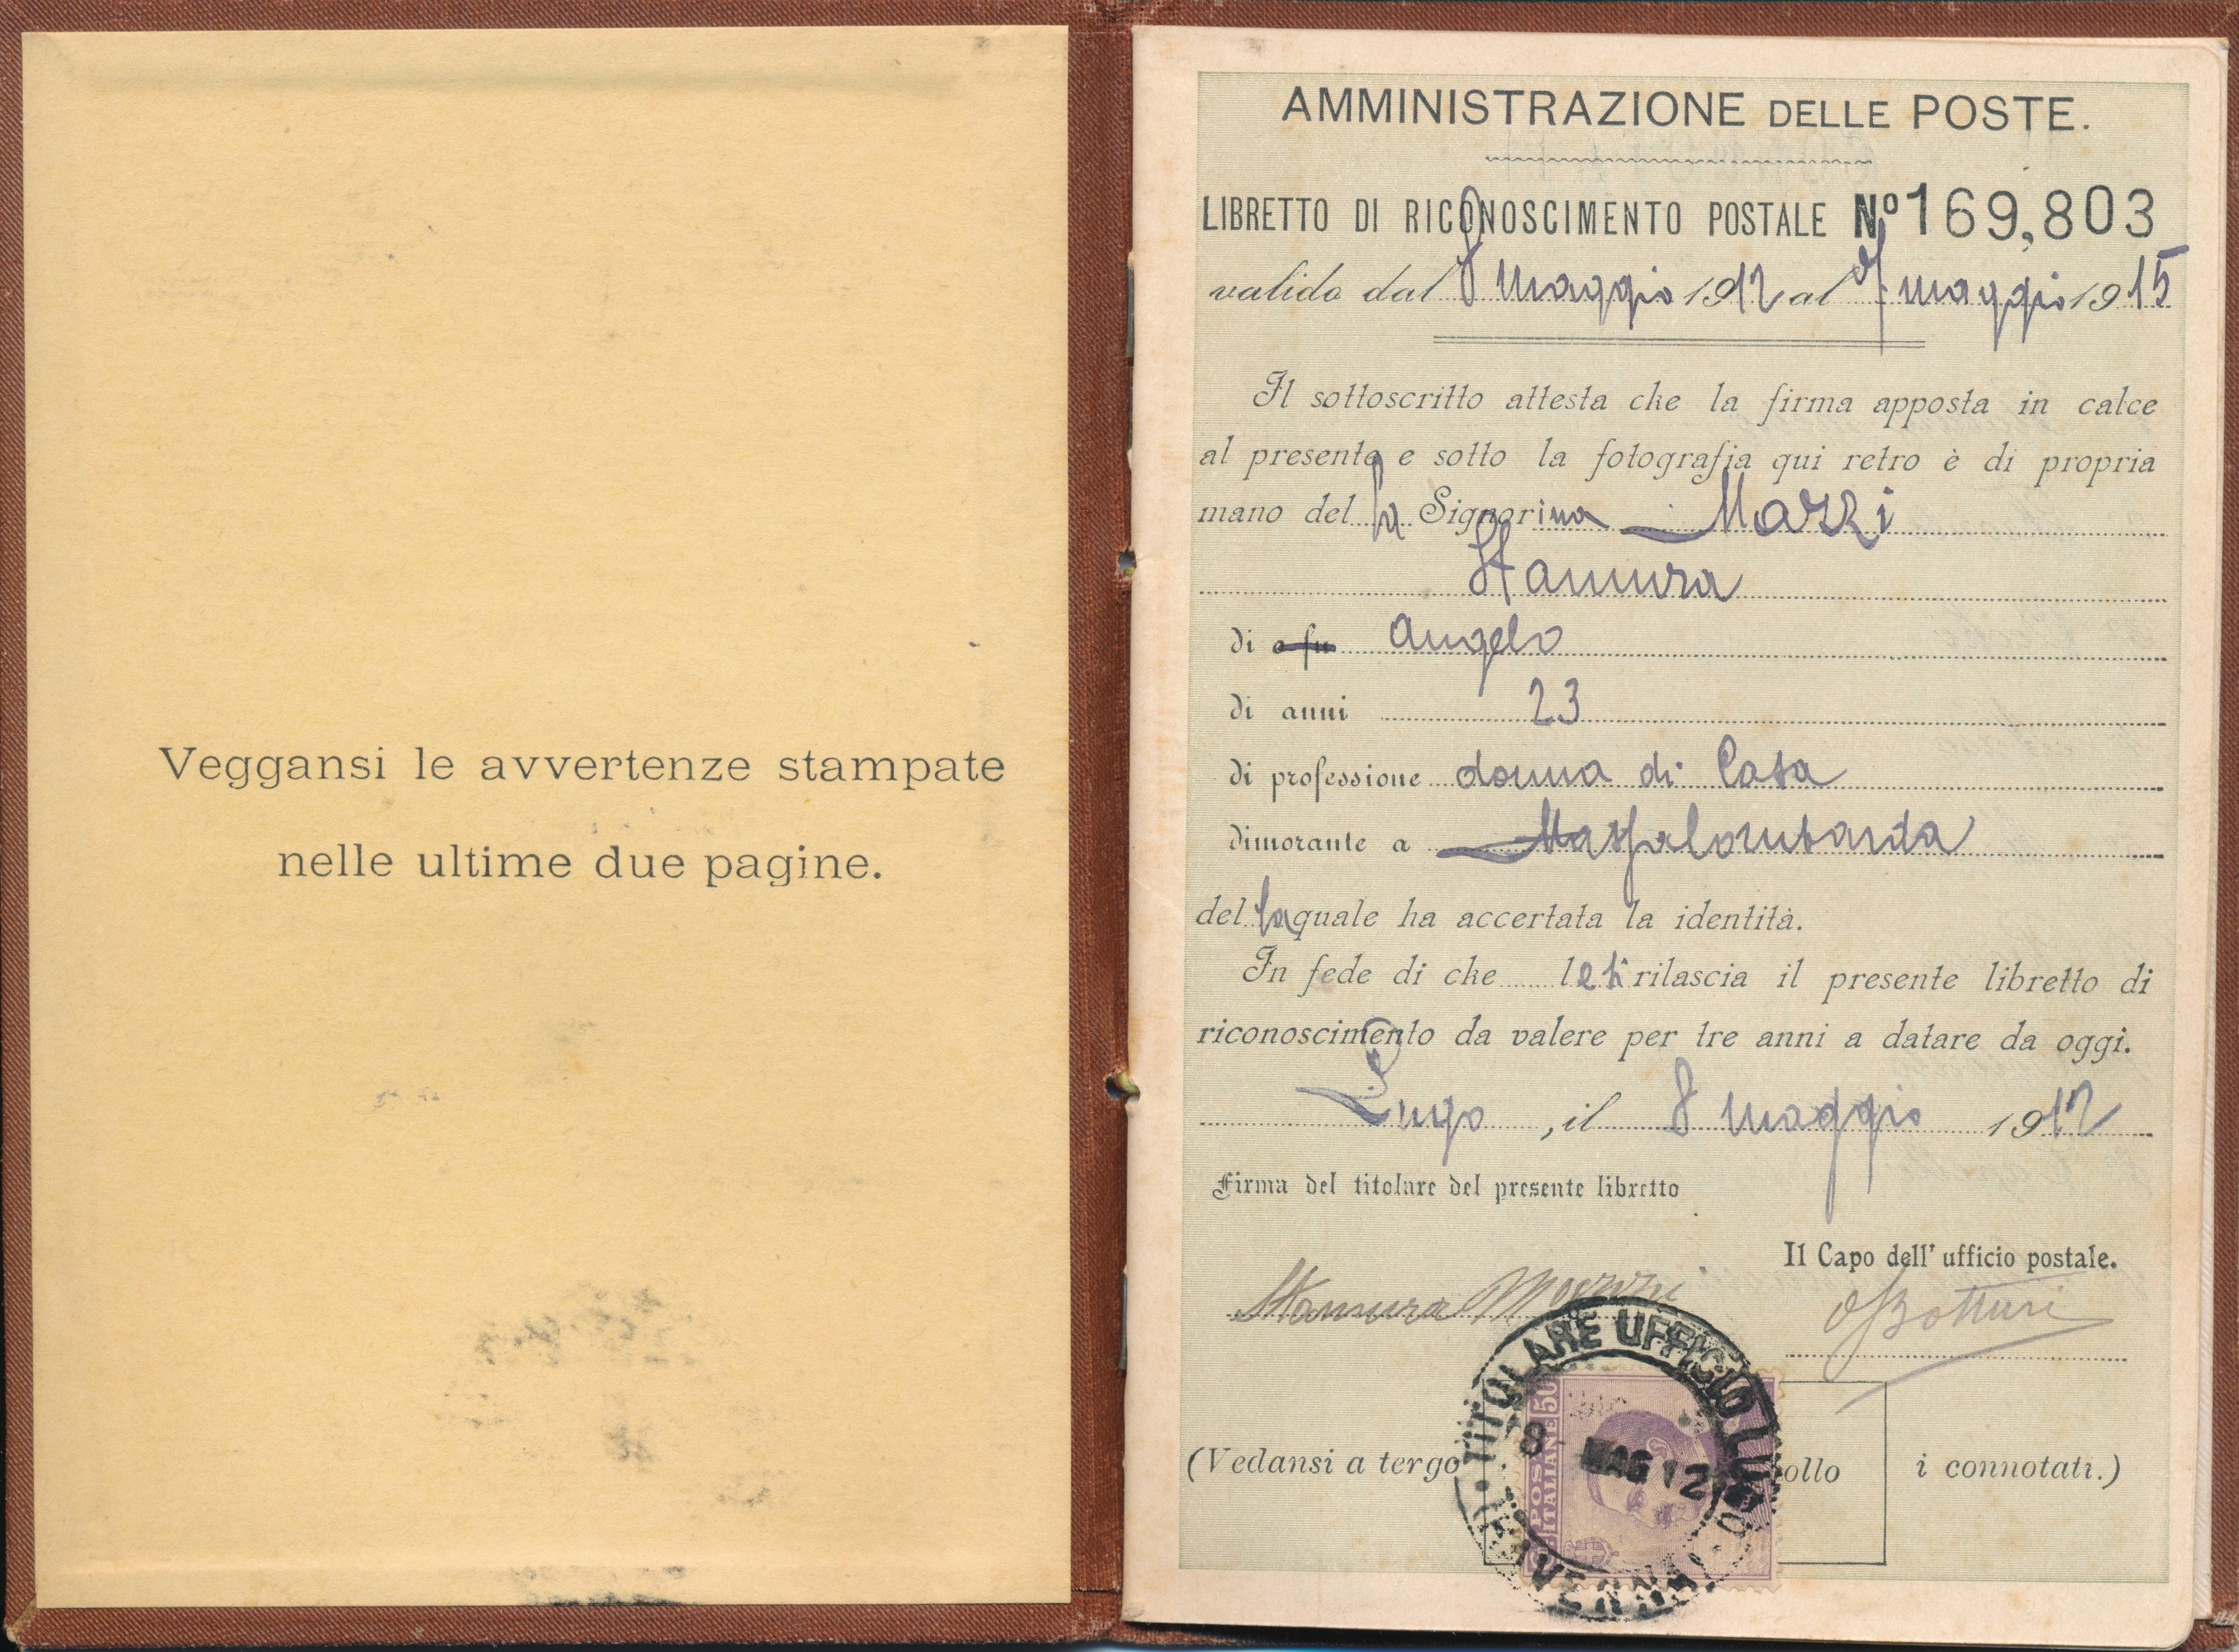 Veggansi le avvertenze stampate
nelle ultime due pagine.
AMMINISTRAZIONE DELLE POSTE.
LIBRETTO DI RICONOSCIMENTO POSTALE Nº 169,803
valido dal 8 Maggio 1912 al 7 maggio 1915
Il sottoscritto attesta che la firma apposta in calce
al presente e sotto la fotografia qui retro è di propria
mano del la Signorina Mazzi
Stamura
di o fu Angelo
di anni 23
di professione donna di Casa
dimorante a Massalombarda
del la quale ha accertata la identità.
In fede di che le si rilascia il presente libretto di
riconoscimento da valere per tre anni a datare da oggi.
Lugo, il 8 Maggio 1912
Firma del titolare del presente libretto
Il Capo dell' ufficio postale.
Stamura Mazzi
Botturi
TITOLARE UFFICIO LUGO
8 MAG 12
RAVENNA
POSTE ITALIANE 50
(Vedansi a tergo ollo i connotati.)